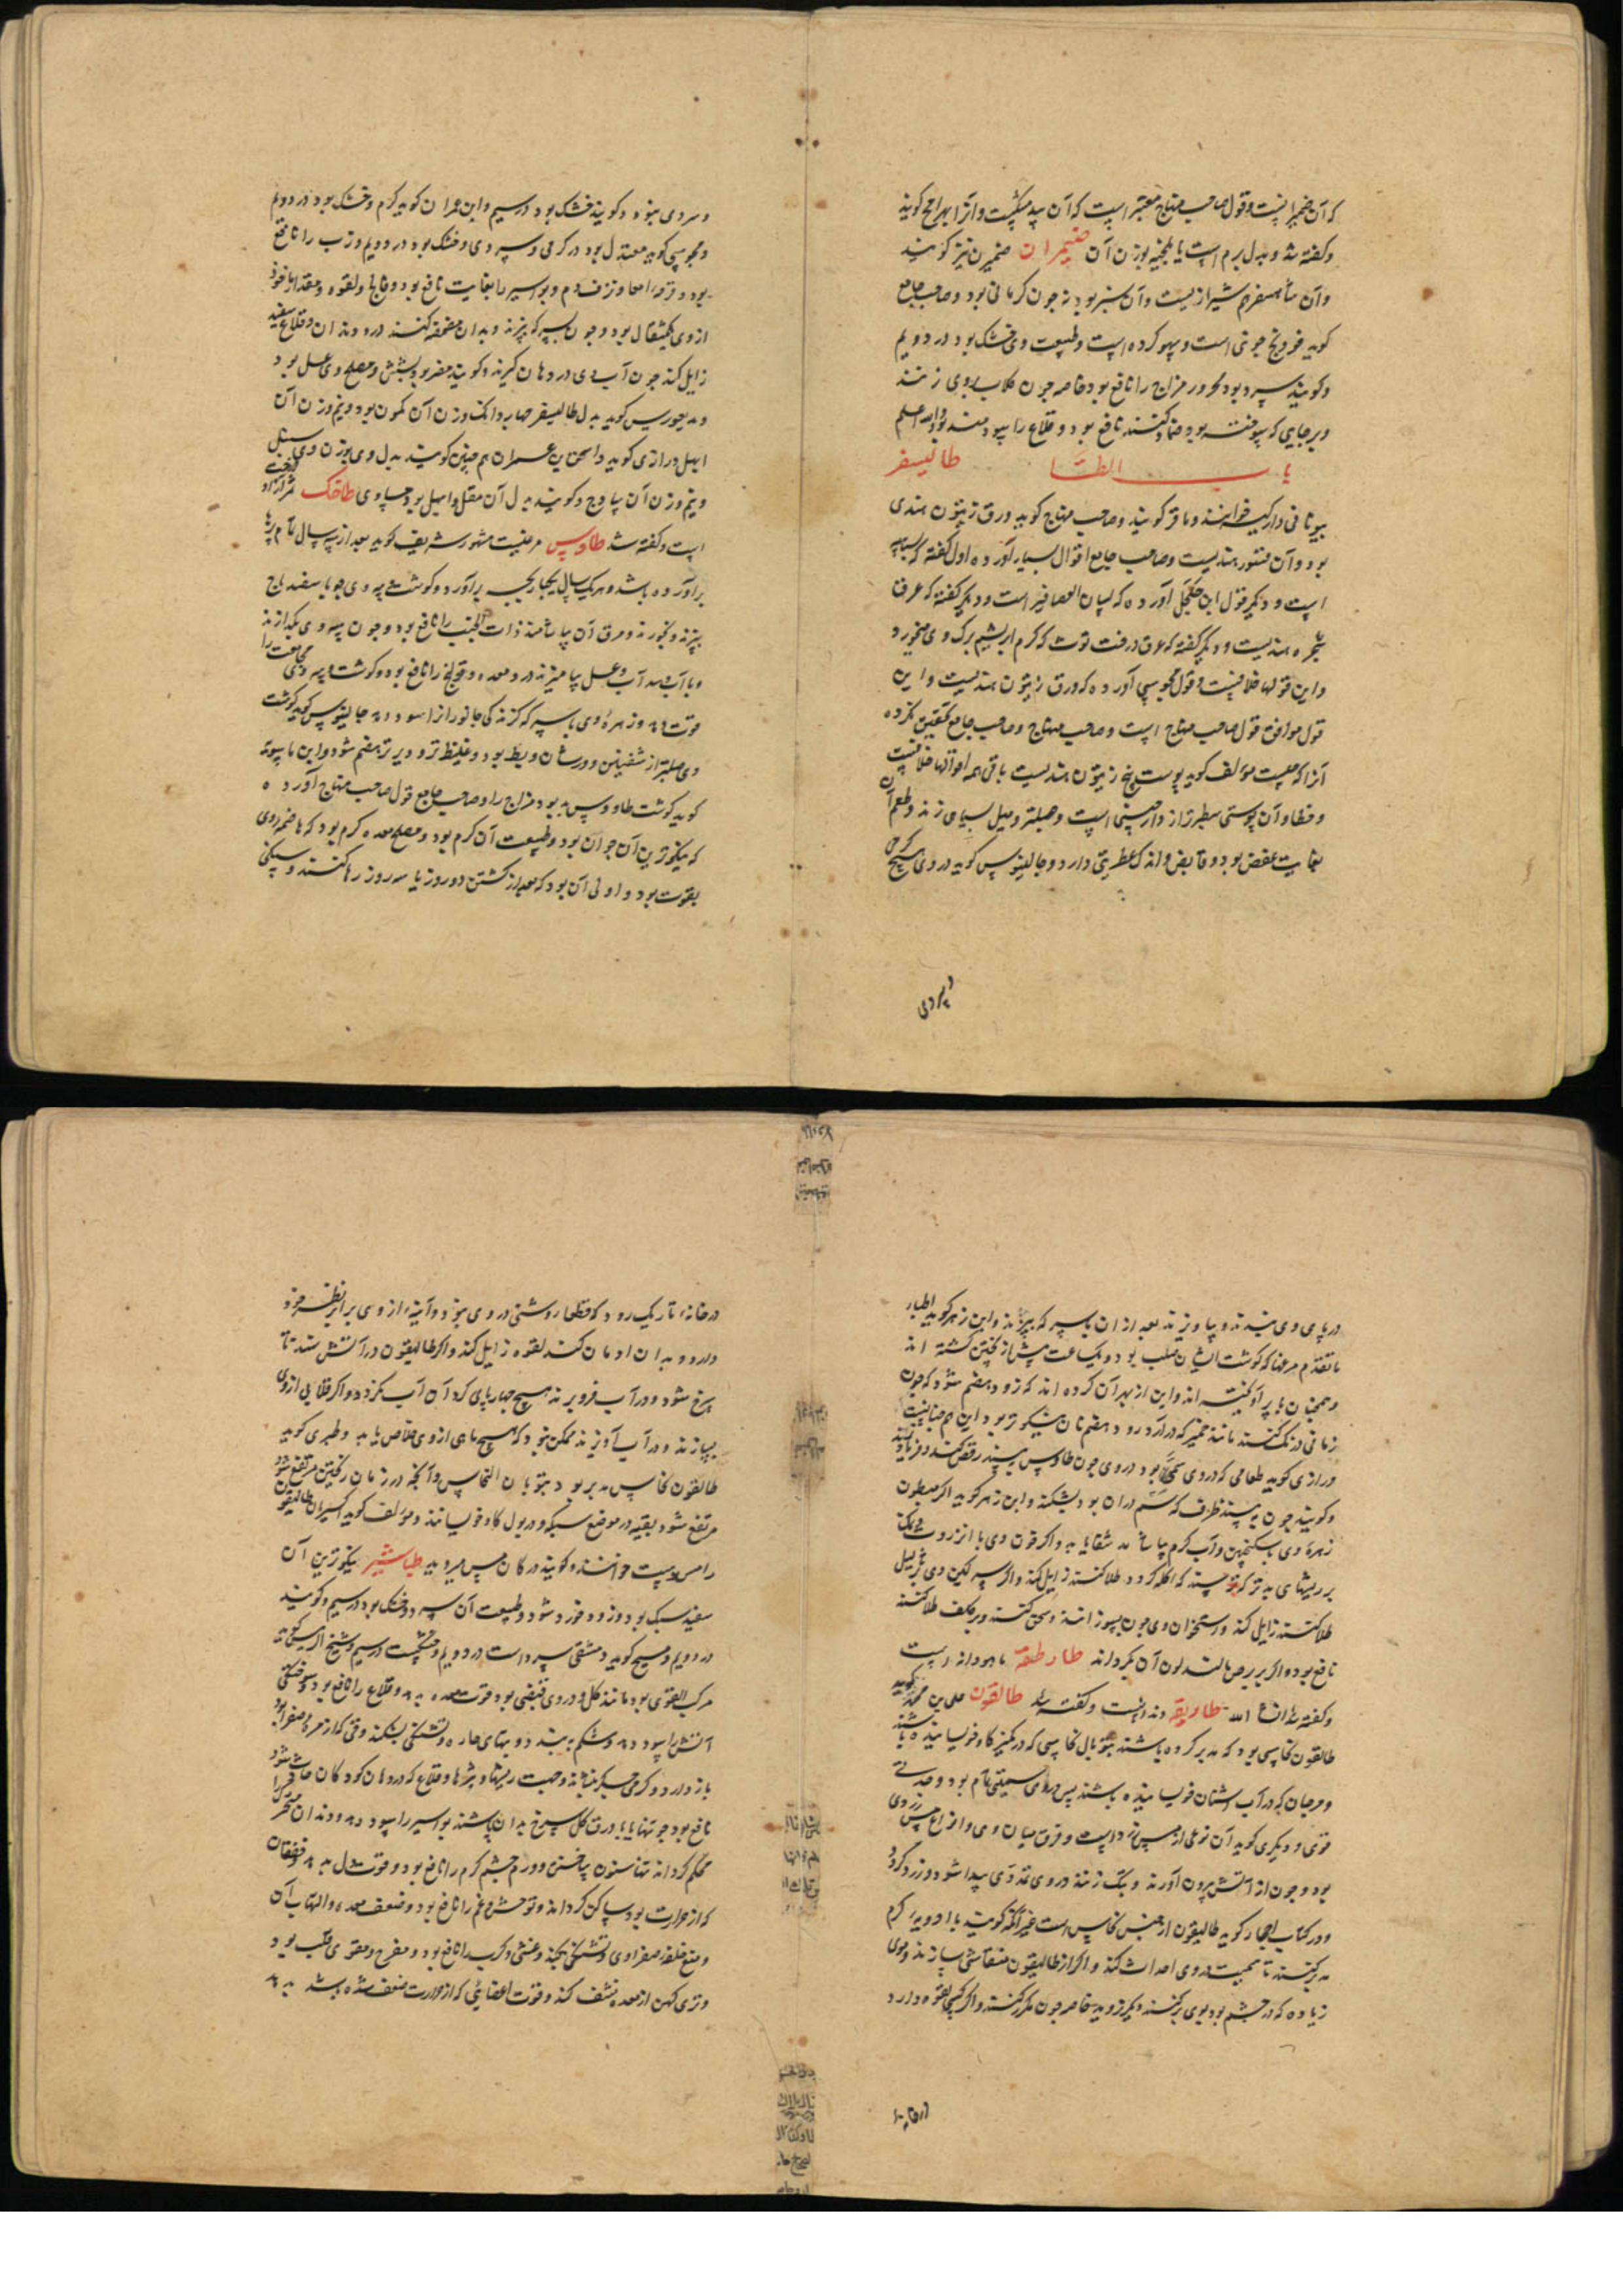 که آن ضمیرانیست و قول صاحب منهاج معتبر است که آن بید مشکیست و آنرا بهرامج گویند
و گفته شد و بدل برم است یا بلنجیه بوزن آن ضیمران ضمیرن نیز گویند
و آن شاهسفرم شیرازیست و آن سبز بود نه چون کرمانی بود و صاحب جامع
گوید فودنج جوی است و سهو کرده است و طبیعت وی خشک بود در دویم
و گویند سرد بود محرور مزاج را نافع بود خاصه چون گلاب بروی زنند
و بر جایی که سوخته بود ضماد کنند نافع بود و قلاع را سود مند بود والله اعلم
باب الطاء طالیسفر
بیونانی دارکیسه خوانند و ماقر گویند و صاحب منهاج گوید ورق زیتون هندی
بود و آن قشور هندیست و صاحب جامع اقوال بسیار آورده اول گفته که بسباسه
است و دیگر قول ابن جلجل آورده که لسان العصافیر است و دیگر گفته که عرق
شجره هندیست و دیگر گفته که عرق درخت توت که کرم ابریشم برگ وی میخورد
و این قولها خلافیست و قول مجوسی آورده که ورق زیتون هندیست و این
قول موافق قول صاحب منهاج است و صاحب منهاج و صاحب جامع تحقیق نکرده
آنرا که چیست مولف گوید پوست بیخ زیتون هندیست باقی همه اقوالها خلافیست
و خطا و آن پوستی سطبرتر از دارچینی است و صلبتر و میل بسیاهی زند و طعم آن
بغایت عفص بود و قابض و اندک عطریتی دارد و جالینوس گوید در وی هیچ گرمی
و سردی نبود و گویند خشک بود در سیم و ابن عمران گوید گرم و خشک بود در دویم
و مجوسی گوید معتدل بود در گرمی و سردی و خشک بود در دویم و ذرب را نافع
بود و قرحه امعا و نزف دم و بواسیر را بغایت نافع بود و فالج و لقوه و مقدار ماخوذ
از وی یکمثقال بود و چون بسرکه بپزند و بدان مضمضه کنند درد دندان و قلاع سفید
زایل کند چون آب وی در دهان گیرند و گویند مضر بود بشش و مصلح وی عسل بود
و دیسقوریدس گوید بدل طالیسفر چهار دانک وزن آن کمون بود و نیم وزن آن
ابهل و رازی گوید و اسحق ابن عمران هم چنین گویند بدل وی بوزن وی سنبل
و نیم وزن آن ساذج و گویند بدل آن مقل و ابهل بود مساوی طاحک ثمر آزاد درخت
است و گفته شد طاوس مرغیست مشهور شریف گوید بعد از سه سال تمام پرها
برآورده باشد و هر یک سال یکبار بچه برآورد و گوشت و پیه وی چون با سفید باج
بپزند و بخورند و مرق آن بیاشامند ذات الجنب را نافع بود و چون پیه وی بگدازند
و با آب سداب و عسل بیامیزند درد معده و قولنج را نافع بود و گوشت و پیه وی مجامعت را
قوت دهد و زهره وی با سرکه گزندگی جانوران را سود دهد جالینوس گوید گوشت
وی صلبتر از شفنین و ورشان و بط بود و غلیظ تر و دیرتر هضم شود و ابن ماسویه
گوید گوشت طاووس بد بود مزاج را و صاحب جامع قول صاحب منهاج آورده
که نیکوترین آن جوان بود و طبیعت آن گرم بود و مصلح معده گرم بود که هاضمه وی
بقوت بود و اولی آن بود که بعد از کشتن دو روز یا سه روز رها کنند و سنگی
در پای وی بندند و بیاویزند بعد از آن با سرکه بپزند و ابن زهر گوید اطبای
ما تقدم مرغها که گوشت ایشان صلب بود و یکساعت پیش از پختن کشته اند
و همچنان با پر آویخته اند و این از بهر آن کرده اند که زود هضم شود که چون
زمانی درنگ کنند مانند خمیر که در آرد رود هضم نان نیکوتر بود این هم چنانیست
و رازی گوید طعامی که در وی سمی بود در وی چون طاوس ببیند رقص کند و فریاد کند
و گویند چون ببیند ظرف که سم در آن بود بشکند و ابن زهر گوید اگر مبطون
زهره وی با سکنجبین و آب گرم بیاشامد شفا یابد و اگر خون وی با انزروت و نمک
بر ریشهای بد تر کنند که اکله گردد طلا کنند زایل کند و اگر سرگین وی بر ثالیل
طلا کنند زایل کند و استخوان وی چون بسوزانند و سحق کنند و بر کلف طلا کنند
نافع بود و اگر بر برص مالند لون آن بگرداند طارطقه ماهودانه است
و گفته شد انشاء الله طاریقه دند است و گفته شد طالقون علی بن محمد گوید
طالقون نحاسی بود که مدبر کرده باشند بتوبال نحاسی که در کمیز گاو خوسانیده باشند
و مرجان که در آب اشنان خوسانیده باشند پس در وی سمیتی تمام بود و حدتی
قوی و دیگری گوید آن نوعی از مس زرد است و فرق میان وی و انواع مس زردی
بود و چون از آتش برون آورند و بپتک زنند در وی تمددی پیدا شود و زرد گردد
و در کتاب احجار گوید طالیقون از جنس نحاس است غیر آنکه گویند با ادویه گرم
مدبر کنند تا سمیت در وی احداث کند و اگر از طالیقون منقاشی بسازند و موی
زیاده که در چشم بود بوی برکنند دیگر نروید خاصه چون مکرر کنند و اگر کسی لقوه دارد
در خانه تاریک رود که قطعا روشنی در وی نبود و آینه از وی برابر نظر خود
دارد و بدان ادمان کند لقوه زایل کند و اگر طالیقون در آتش نهند تا
سرخ شود و در آب فرو برند هیچ چهارپای گرد آن آب نگردد و اگر قلابی از وی
بسازند و در آب آویزند ممکن نبود که هیچ ماهی از وی خلاص یابد و طبری گوید
طالقون نحاس مدبر بود بتوبال النحاس و آنچه در زمان ریختن مرتفع شود
مرتفع شود بقیه در موضع سبکه و در بول گاو خوسانند و مولف گوید اکسیریان طالیقون
را مس روست خوانند و گویند در کان مس میروید طباشیر نیکوترین آن
سفید سبک بود و زود خورد شود و طبیعت آن سرد و خشک بود در سیم و گویند
در دویم و مسیح گوید دمشقی سرد است در دویم و خشکست در سیم و شیخ الرئیس گوید
مرکب القوی بود مانند گل و در وی قبضی بود قوت معده بدهد و قلاع را نافع بود و سوختگی
آتش را سود دهد و شکم ببندد و تبهای حاره و تشنگی بشکند و قی که از مره صفرا بود
باز دارد و گرمی جگر بنشاند و جهت ریشها و بثرها و قلاع که در دهان کودکان حادث شود
نافع بود چو تنها یا با ورق گل سرخ بدان پاشند بواسیر را سود دهد و دندان متحرک را
محکم گرداند تنها سنون ساختن و ورم چشم گرم را نافع بود و قوت دل بدهد و خفقان
که از حرارت بود ساکن گرداند و توحش و غم را نافع بود و ضعف معده و التهاب آن
و منع خلفه صفراوی و تشنگی بکند و غشی و کرب را نافع بود و مفرح و مقوی قلب بود
و تری کهن از معده نشف کند و قوت اعضایی که از حرارت ضعف شده باشد بدهد